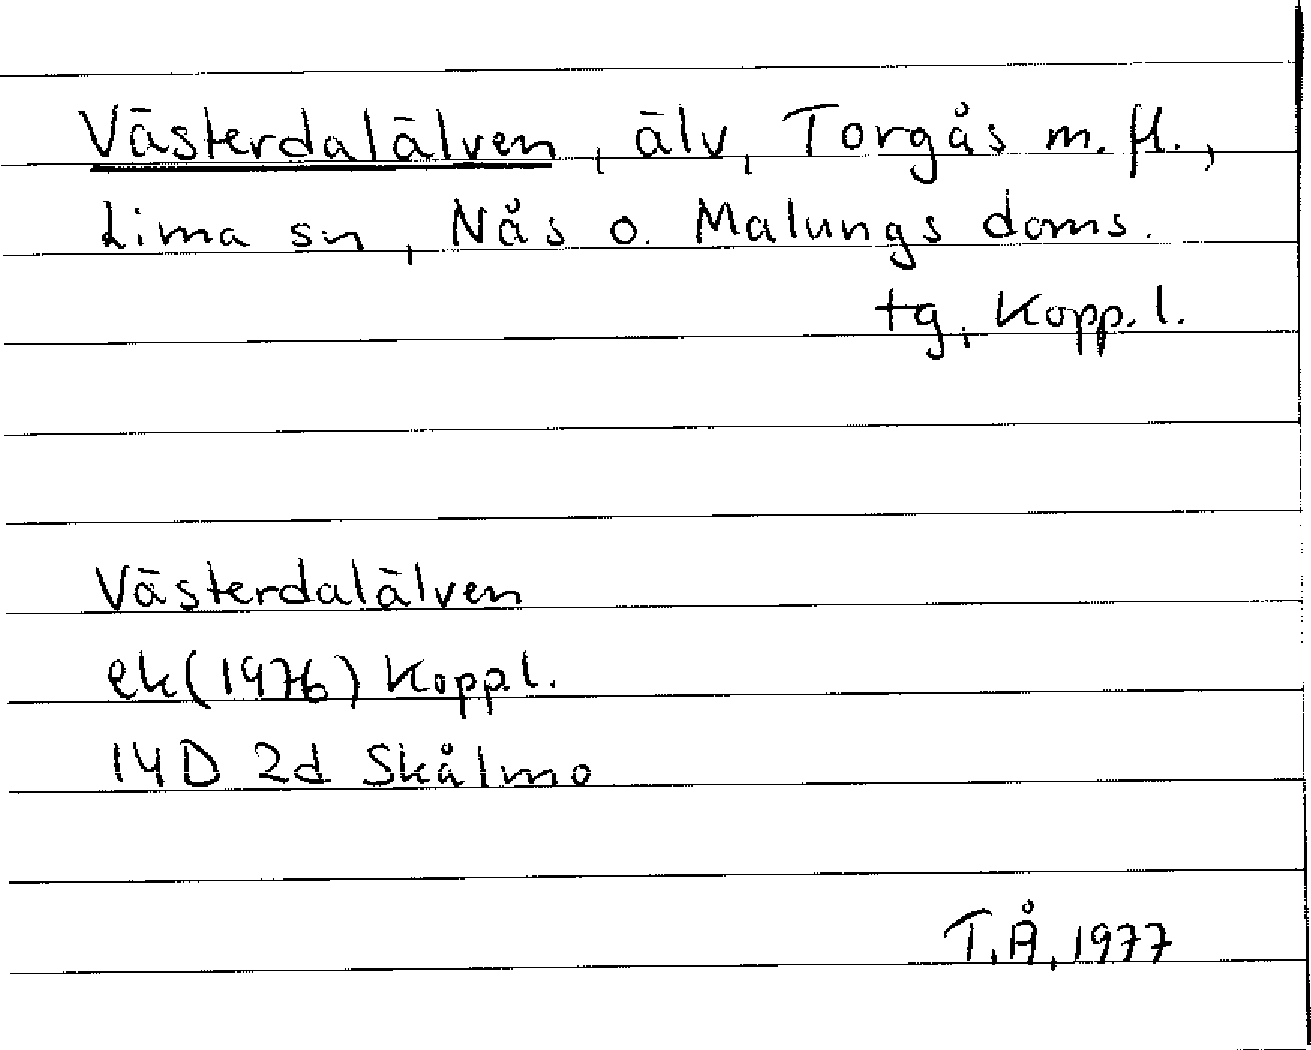 Västerdalälven, älv, Torgås m. fl.,
Lima sn, Nås o. Malungs doms.
tg, Kopp. l.
Västerdalälven
ek (1976) Kopp l.
14D 2d Skålmo
T.Å, 1977